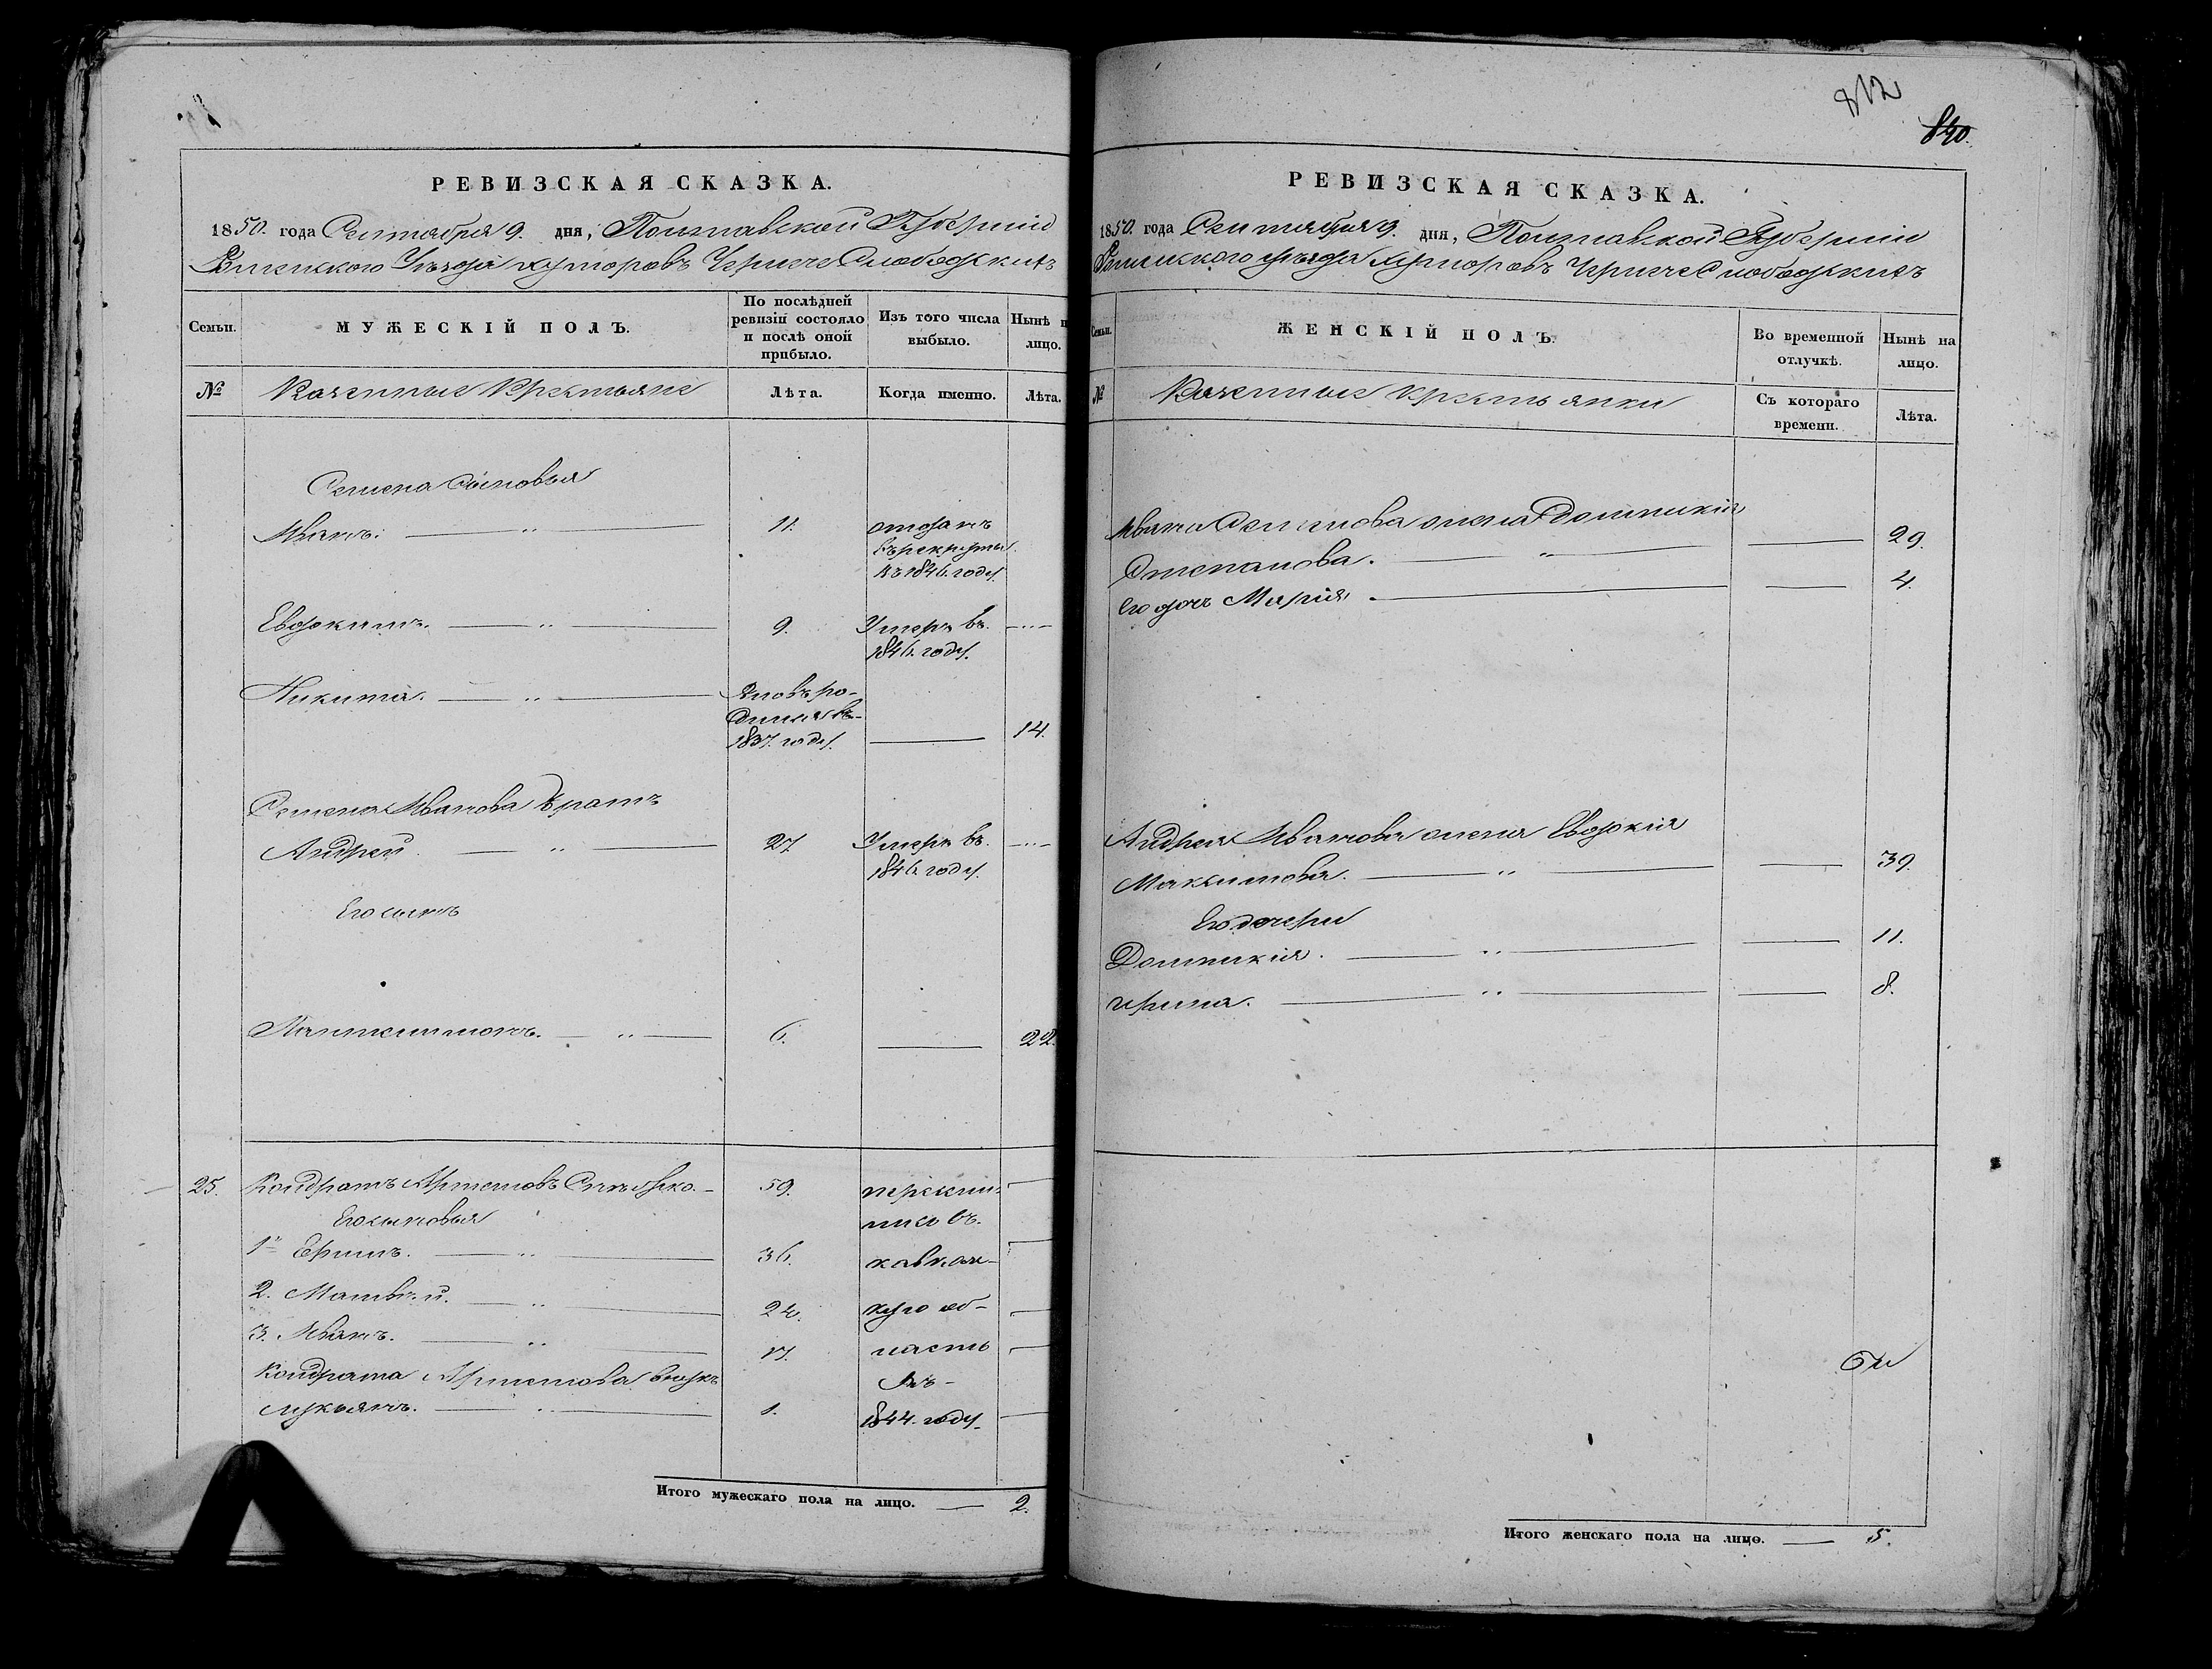 РЕВИЗСКАЯ СКАЗКА.
1850. года Сентября 9. дня, Полтавской Губерніи
Роменского Уѣзда хуторовъ Чернече Слободскихъ
Семьи.
МУЖЕСКІЙ ПОЛЪ.
По послѣдней ревизіи состояло и послѣ оной прибыло.
Изъ того числа выбыло.
Нынѣ н лицо.
№
Казенные Крестьяне
Лѣта.
Когда именно.
Лѣта.
Семена Сыновья
Иванъ. 11. отданъ
въ рекруты
въ 1846. году.
Евдокимъ. 9. Умеръ въ
1846. году.
Никита. Вновь ро-
дился въ
1837. году. 14.
Семена Иванова братъ
Андрей 27 Умеръ въ
1846. году.
Его сынъ
Пантелимонъ. 6. 22.
25. Кондратъ Артемовъ 59. переселил
Его сыновья лися въ
1й Ефимъ. 36. кавказ-
2. Матвѣй. 24. кую об-
3. Иванъ. 17. ласть
Кондрата Артемова внукъ въ
Лукьянъ. 1. 1844. году.
Итого мужескаго пола на лицо. 2.
812
840.
РЕВИЗСКАЯ СКАЗКА.
1850. года Сентября 9. дня, Полтавской Губерніи
Роменского уѣзда хуторовъ Чернече Слободскихъ
Семьи.
ЖЕНСКІЙ ПОЛЪ.
Во временной отлучкѣ.
Нынѣ на лицо.
№
Казенные крестьянки
Съ котораго времени.
Лѣта.
Ивана Семенова жена Домникія
Степанова. 29.
Его дочь Марія 4.
Андрея Иванова жена Евдокія
Максимова. 39.
Его дочери
Домникія. 11.
Ирина. 8.
Итого женскаго пола на лицо. 5.